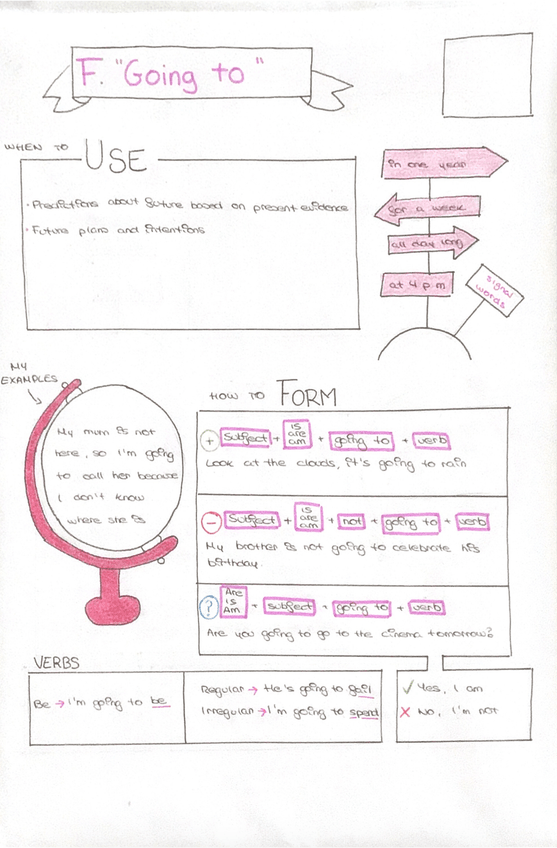 F. "Going to"
WHEN TO USE
· Predictions about future based on present evidence
· Future plans and intentions
in one year
for a week
all day long
at 4 p.m
signal
words
MY
EXAMPLES
My mum is not
here, so I'm going
to call her because
I don't know
where she is
HOW TO FORM
+ subject + is are am + going to + verb
Look at the clouds, it's going to rain
- subject + is are am + not + going to + verb
My brother is not going to celebrate his
birthday.
? Are Is Am + subject + going to + verb
Are you going to go to the cinema tomorrow?
VERBS
Be → I'm going to be
Regular → He's going to fail
Irregular → I'm going to spend
✓ Yes, I am
✗ No, I'm not